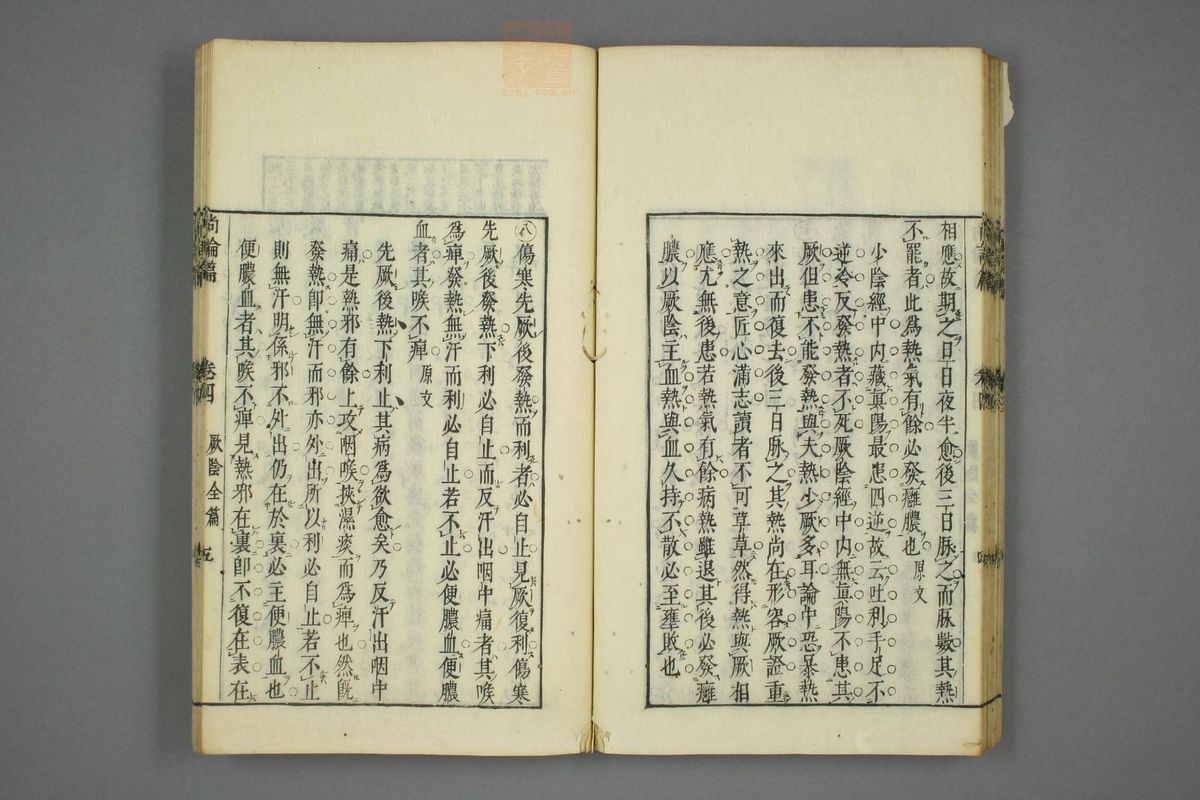 相應故期之旦日夜半愈後三日脉之而脉數其熱
不罷者此爲熱氣有餘必發癰膿也原文
少陰經中内藏眞陽最患四逆故云吐利手足不
逆冷反發熱者不死厥陰經中内無眞陽不患其
厥但患不能發熱與夫熱少厥多耳論中恐暴熱
來出而復去後三日脉之其熱尚在形容厥證重
熱之意匠心滿志讀者不可草草然得熱與厥相
應尤無後患若熱氣有餘病熱雖退其後必發癰
膿以厥陰主血熱與血久持不散必至壅敗也
㊇傷寒先厥後發熱而利者必自止見厥復利傷寒
先厥後發熱下利必自止而反汗出咽中痛者其喉
爲痺發熱無汗而利必自止若不止必便膿血便膿
血者其喉不痺原文
先厥後熱下利止其病爲欲愈矣乃反汗出咽中
痛是熱邪有餘上攻咽喉挾濕痰而爲痺也然旣
發熱卽無汗而邪亦外出所以利必自止若不止
則無汗明係邪不外出仍在於裏必主便膿血也
便膿血者其喉不痺見熱邪在裏卽不復在表在
尚論篇 卷四 厥陰全篇 五
zysj.com.cn